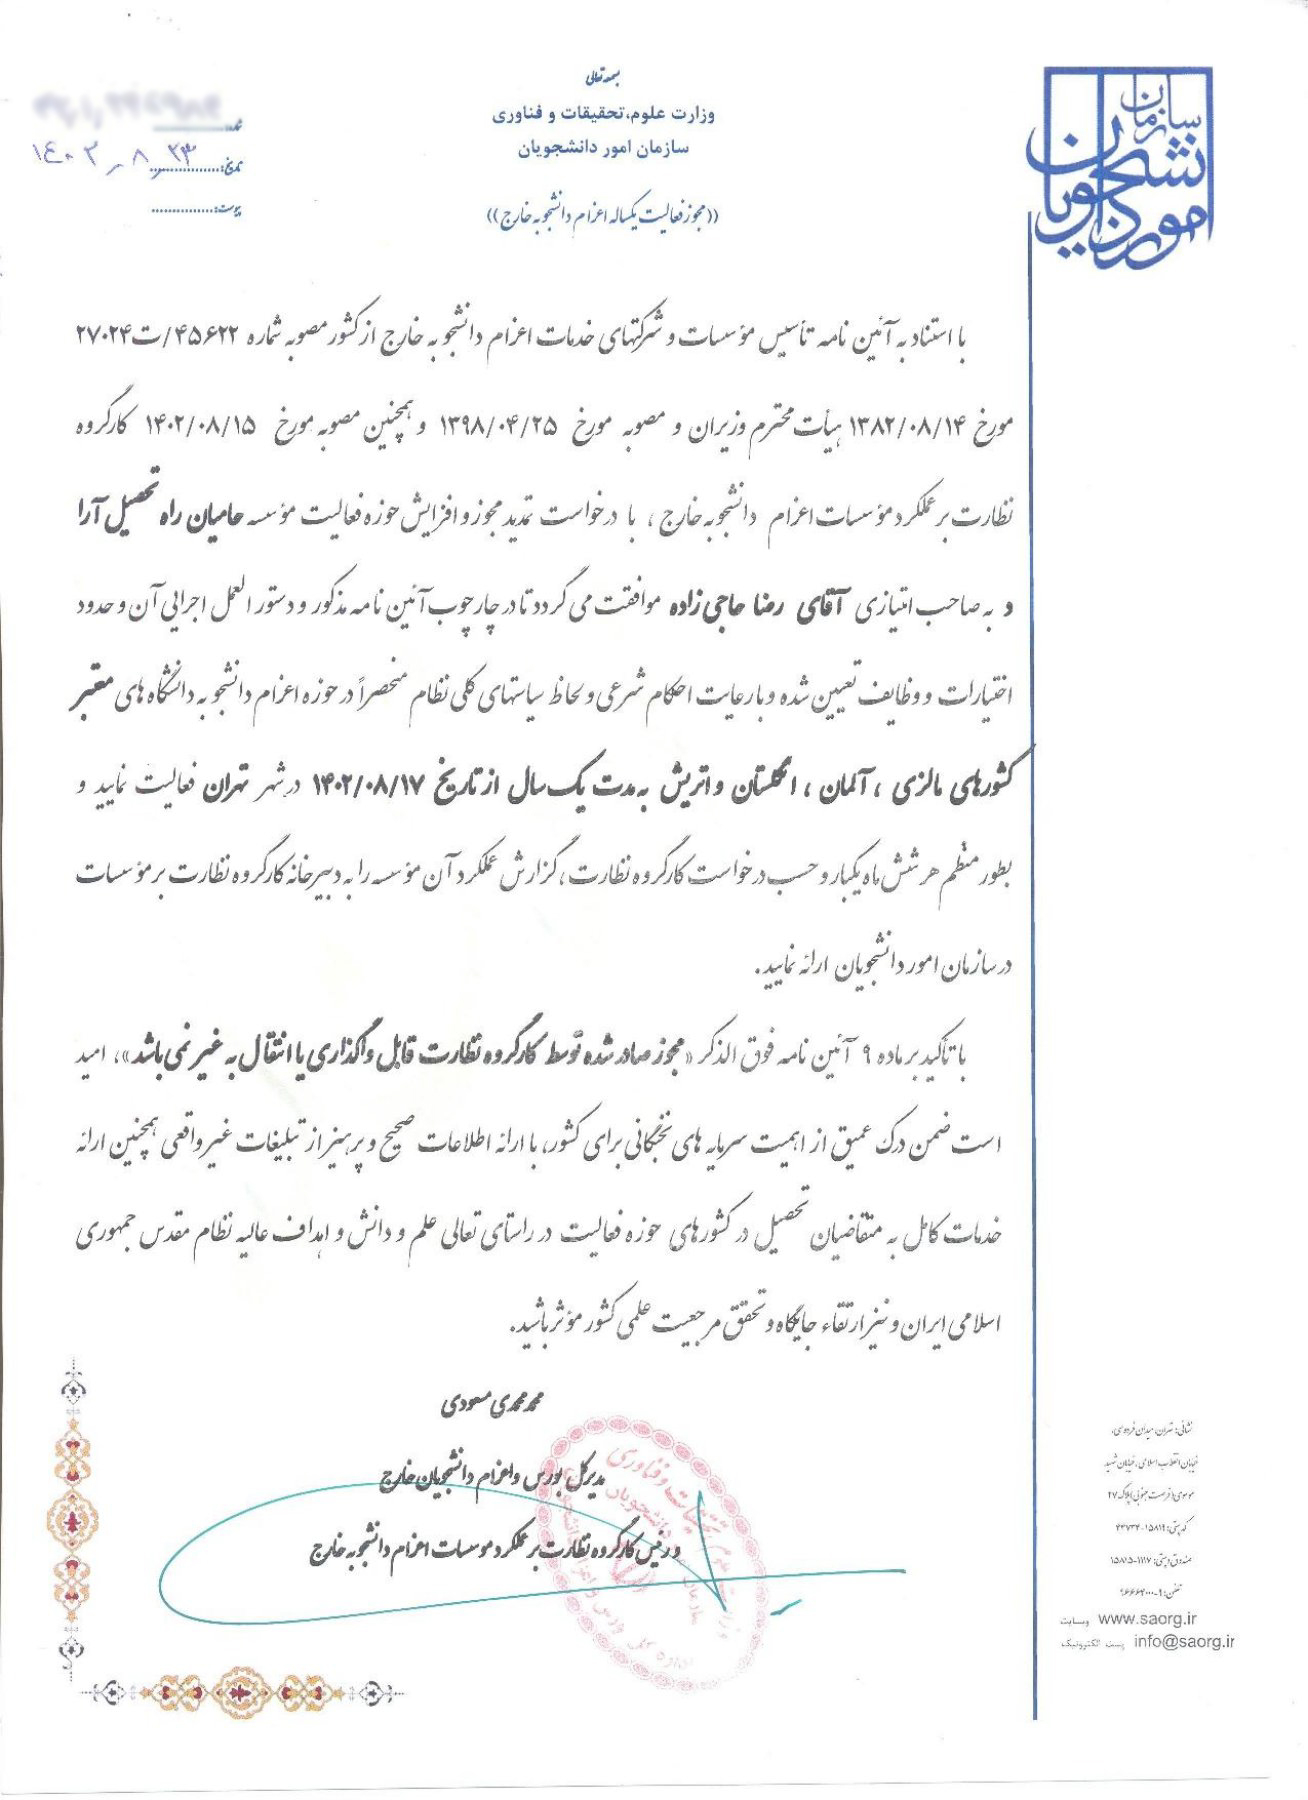 سازمان امور دانشجویان
بسمه تعالی
وزارت علوم،تحقیقات و فناوری
سازمان امور دانشجویان
((مجوز فعالیت یکساله اعزام دانشجو به خارج))
تاریخ: ۱۴۰۲-۸-۲۳
پیوست:..............
با استناد به آئین نامه تأسیس مؤسسات و شرکتهای خدمات اعزام دانشجو به خارج از کشور مصوبه شماره ۴۵۶۲۲/ت۲۷۰۲۴
مورخ ۱۳۸۲/۰۸/۱۴ هیأت محترم وزیران و مصوبه مورخ ۱۳۹۸/۰۴/۲۵ و همچنین مصوبه مورخ ۱۴۰۲/۰۸/۱۵ کارگروه
نظارت بر عملکرد مؤسسات اعزام دانشجو به خارج ، با درخواست تمدید مجوز و افزایش حوزه فعالیت مؤسسه حامیان راه تحصیل آرا
و به صاحب امتیازی آقای رضا حاجی زاده موافقت می گردد تا در چارچوب آئین نامه مذکور و دستور العمل اجرایی آن و حدود
اختیارات و وظایف تعیین شده و با رعایت احکام شرعی و لحاظ سیاستهای کلی نظام منحصراً در حوزه اعزام دانشجو به دانشگاه های معتبر
کشورهای مالزی ، آلمان ، انگلستان و اتریش به مدت یک سال از تاریخ ۱۴۰۲/۰۸/۱۷ در شهر تهران فعالیت نمایید و
بطور منظم هر شش ماه یکبار و حسب درخواست کارگروه نظارت، گزارش عملکرد آن مؤسسه را به دبیرخانه کارگروه نظارت بر مؤسسات
در سازمان امور دانشجویان ارائه نمایید.
با تأکید بر ماده ۹ آئین نامه فوق الذکر «مجوز صادر شده توسط کارگروه نظارت قابل واگذاری یا انتقال به غیر نمی باشد»، امید
است ضمن درک عمیق از اهمیت سرمایه های نخبگانی برای کشور، با ارائه اطلاعات صحیح و پرهیز از تبلیغات غیر واقعی همچنین ارائه
خدمات کامل به متقاضیان تحصیل در کشورهای حوزه فعالیت در راستای تعالی علم و دانش و اهداف عالیه نظام مقدس جمهوری
اسلامی ایران و نیز ارتقاء جایگاه و تحقق مرجعیت علمی کشور مؤثر باشید.
محمد محمدی مسعودی
مدیرکل بورس و اعزام دانشجویان خارج
و رئیس کارگروه نظارت بر عملکرد موسسات اعزام دانشجو به خارج
نشانی: تهران، میدان فردوسی،
خیابان انقلاب اسلامی، خیابان شهید
موسوی (فرصت جنوبی) پلاک ۲۷
صندوق پستی: ۱۱۱۷-۱۵۸۱۵
وبسایت www.saorg.ir
پست الکترونیک info@saorg.ir